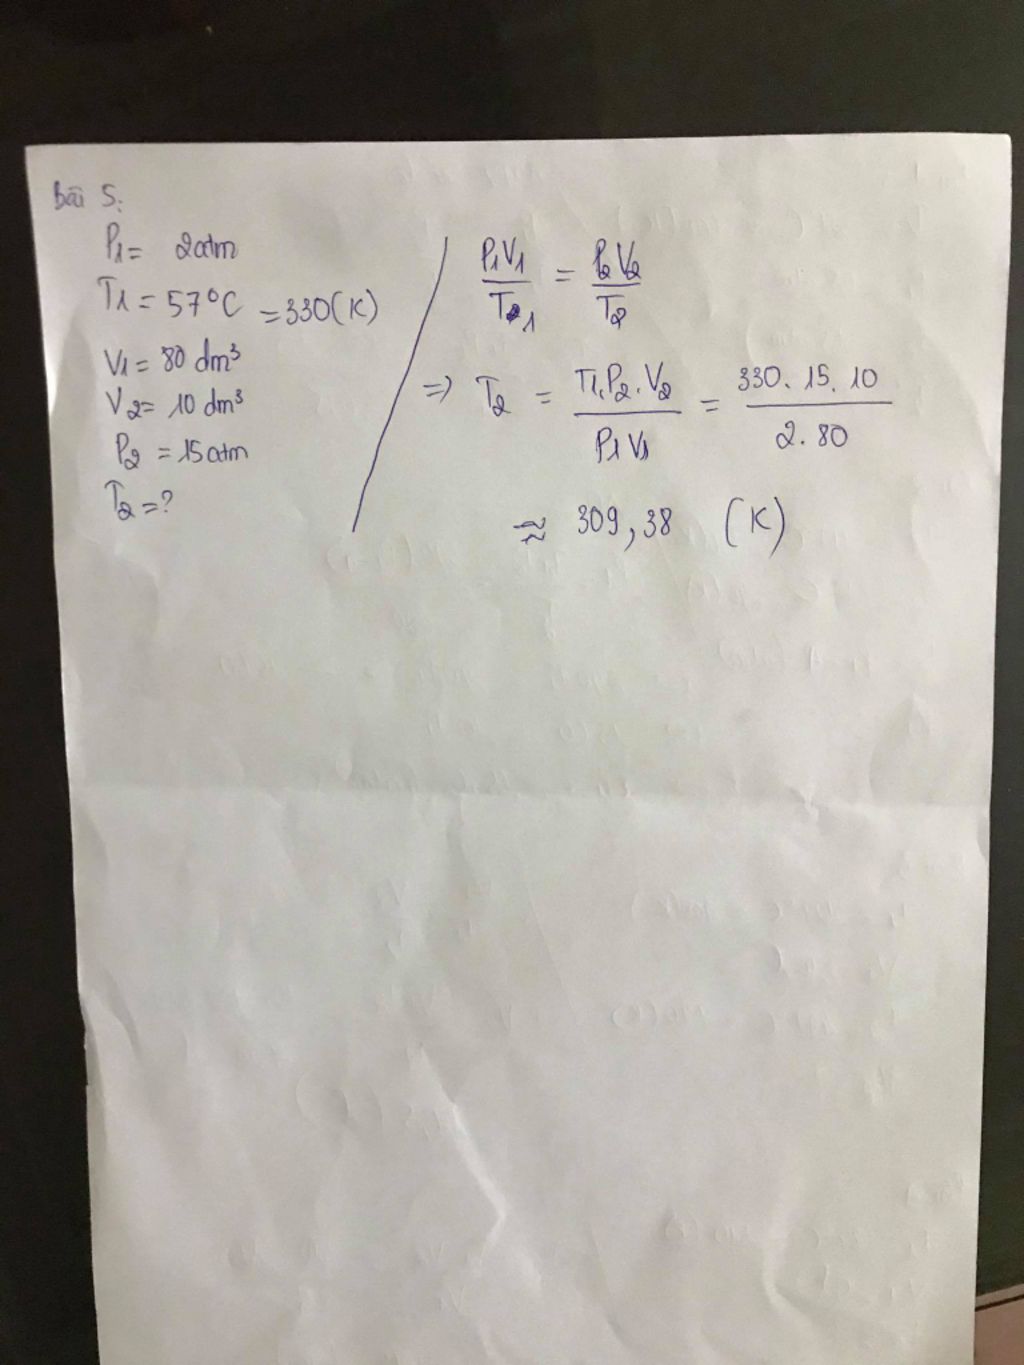 Bài 5:
P1 = 2atm
T1 = 57°C = 330(K)
V1 = 80 dm³
V2 = 10 dm³
P2 = 15atm
T2 = ?
P1V1 / T1 = P2V2 / T2
=> T2 = T1.P2.V2 / P1V1 = 330.15.10 / 2.80
≈ 309,38 (K)